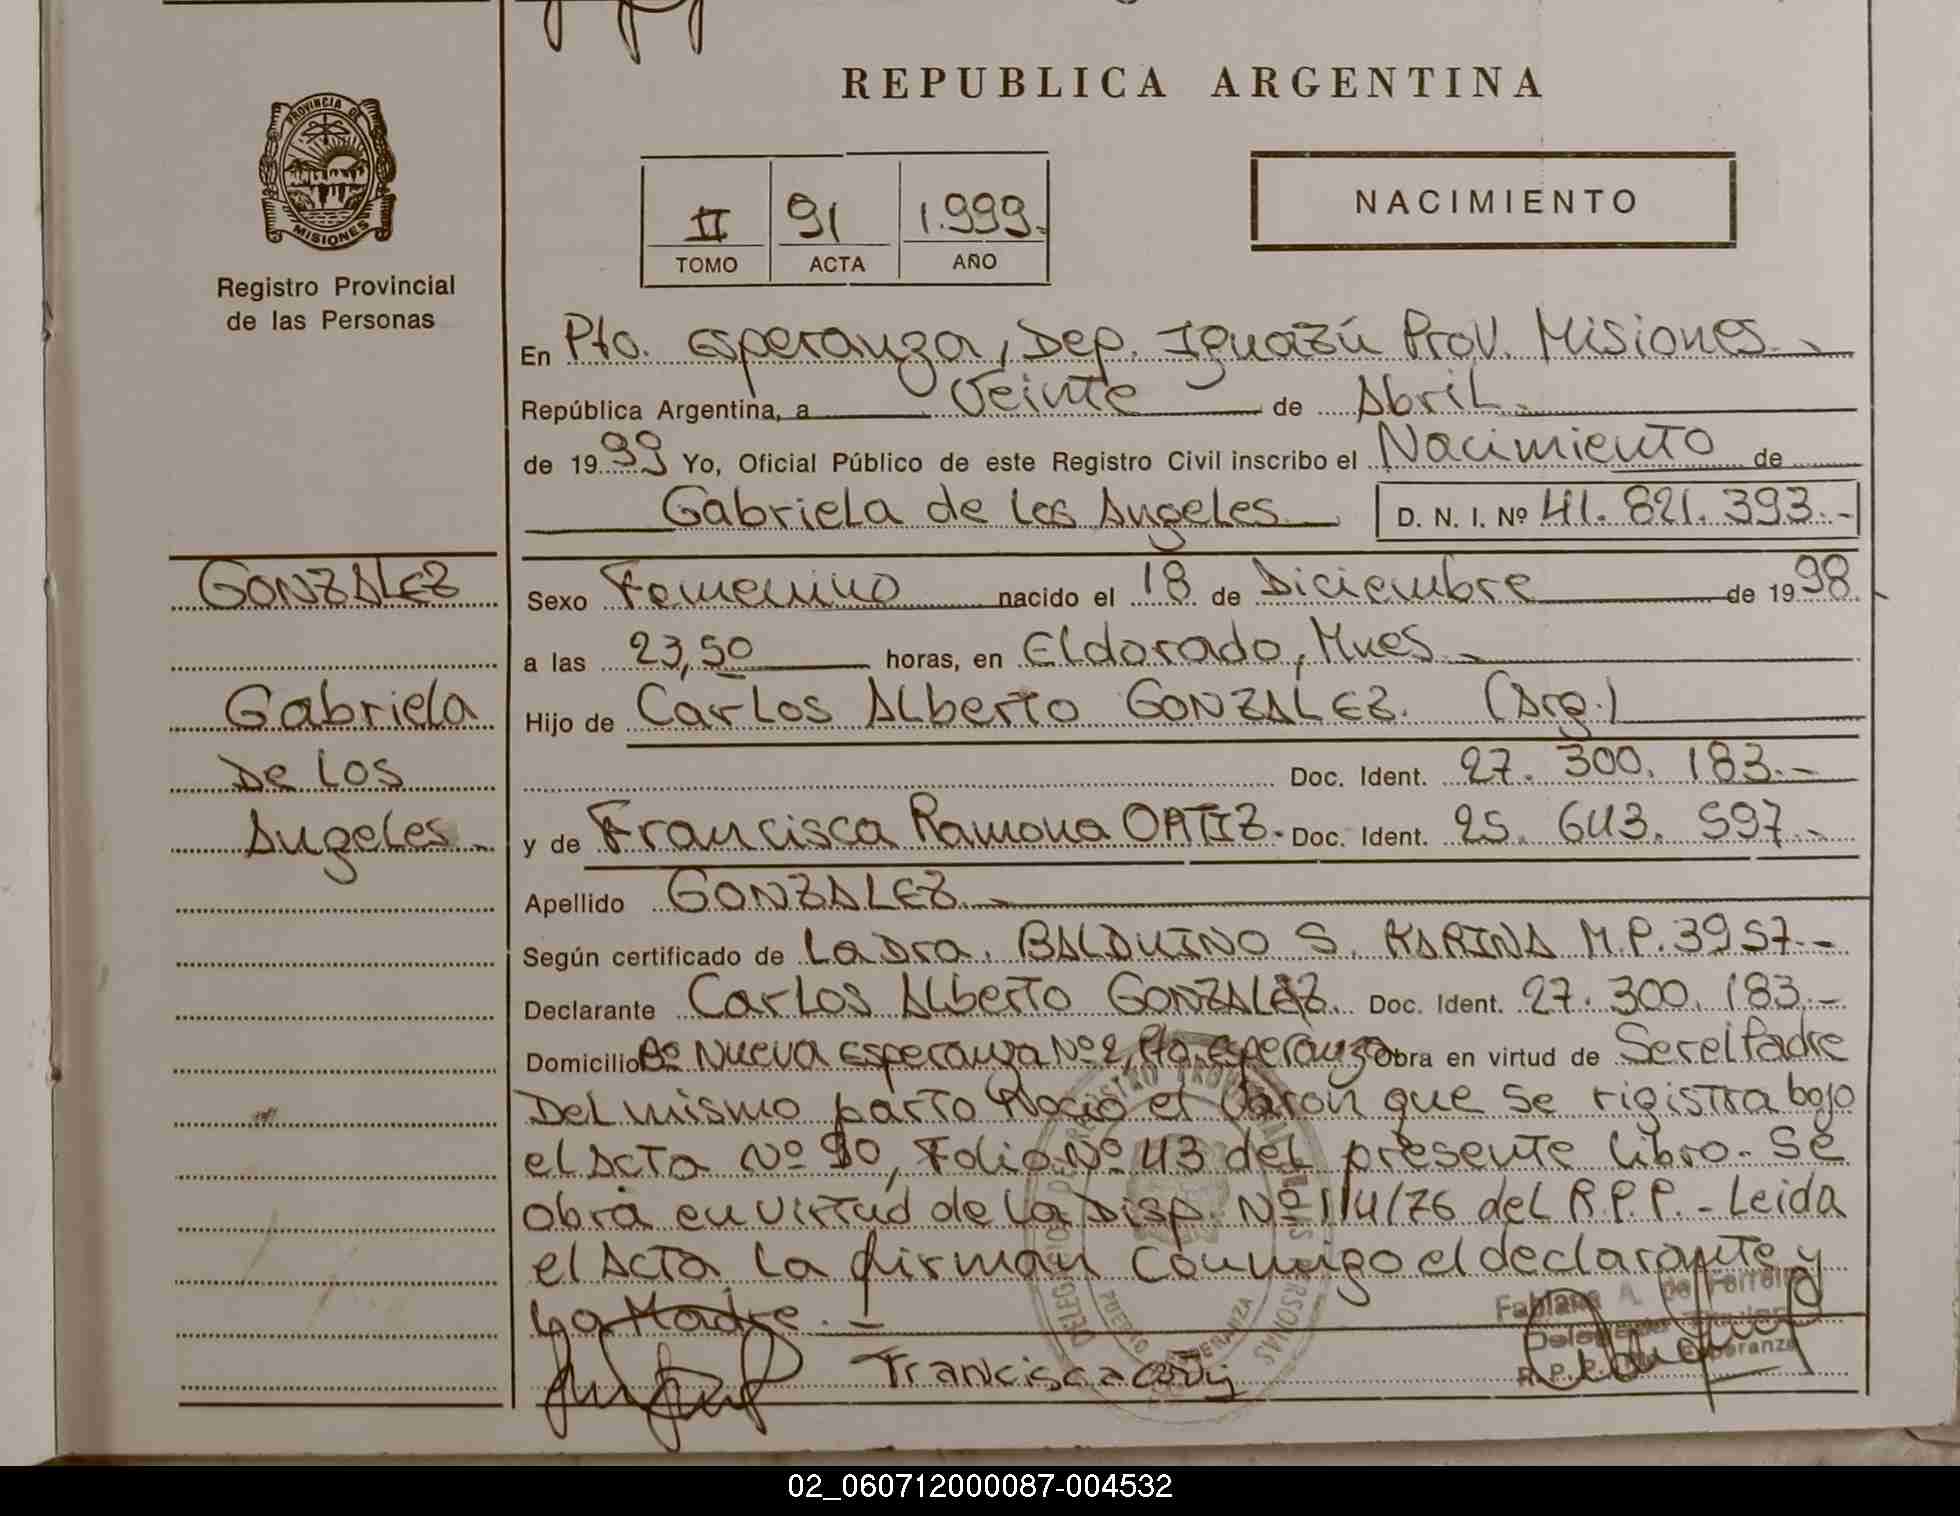 REPUBLICA ARGENTINA
PROVINCIA DE
MISIONES
Registro Provincial
de las Personas
II 91 1.999.
TOMO ACTA AÑO
NACIMIENTO
En Pto. Esperanza, Dep. Iguazú Prov. Misiones.
República Argentina, a Veinte de Abril.
de 1999 Yo, Oficial Público de este Registro Civil inscribo el Nacimiento de
Gabriela de los Angeles D. N. I. Nº 41.821.393.-
GONZALEZ
Gabriela
De Los
Angeles.
Sexo Femenino nacido el 18 de Diciembre de 1998.
a las 23,50 horas, en Eldorado, Mnes.
Hijo de Carlos Alberto GONZALEZ. (Arg.)
Doc. Ident. 27.300.183.-
y de Francisca Ramona ORTIZ. Doc. Ident. 25.643.597.-
Apellido GONZALEZ.
Según certificado de La Dra. BALDUINO S. KARINA M.P. 3957.-
Declarante Carlos Alberto GONZALEZ. Doc. Ident. 27.300.183.-
Domicilio Bº Nueva Esperanza Nº 2, Pto. Esperanza Obra en virtud de Ser el Padre
Del mismo parto Nacio el Varon que se rigistra bajo
el Acta Nº 90, Folio Nº 43 del presente libro. Se
obra en virtud de la Disp. Nº 114/76 del R.P.P. - Leida
el Acta la firman conmigo el declarante y
La Madre. -
Francisca
02_060712000087-004532